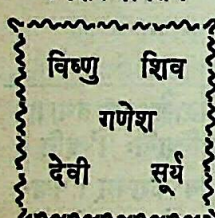 विष्णु शिव
गणेश
देवी सूर्य